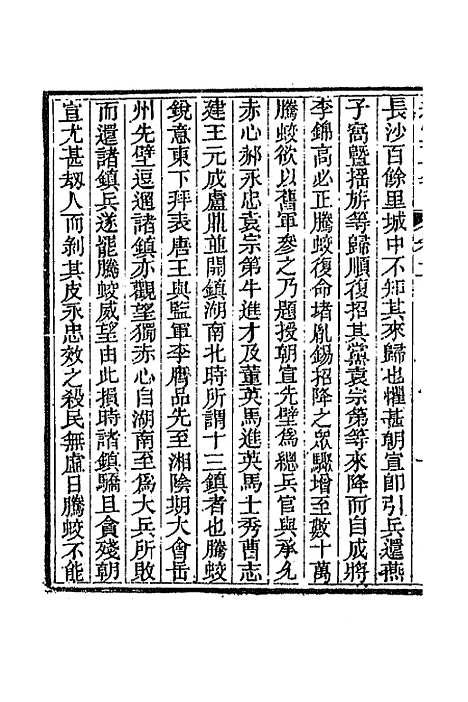 長沙百餘里城中不知其來歸也懼甚朝宣卽引兵還燕
子窩暨搖旂等歸順復招其黨袁宗第等來降而自成將
李錦高必正騰蛟復命堵胤錫招降之衆驟增至數十萬
騰蛟欲以舊軍參之乃題授朝宣先壁爲總兵官與承允
赤心郝永忠袁宗第牛進才及董英馬進英馬士秀曹志
建王元成盧鼎並開鎮湖南北時所謂十三鎮者也騰蛟
銳意東下拜表唐王與監軍李膺品先至湘陰期大會岳
州先壁逗遛諸鎮亦觀望獨赤心自湖南至爲大兵所敗
而還諸鎮兵遂罷騰蛟威望由此損時諸鎮驕且貪殘朝
宣尤甚刼人而剥其皮永忠效之殺民無虛日騰蛟不能